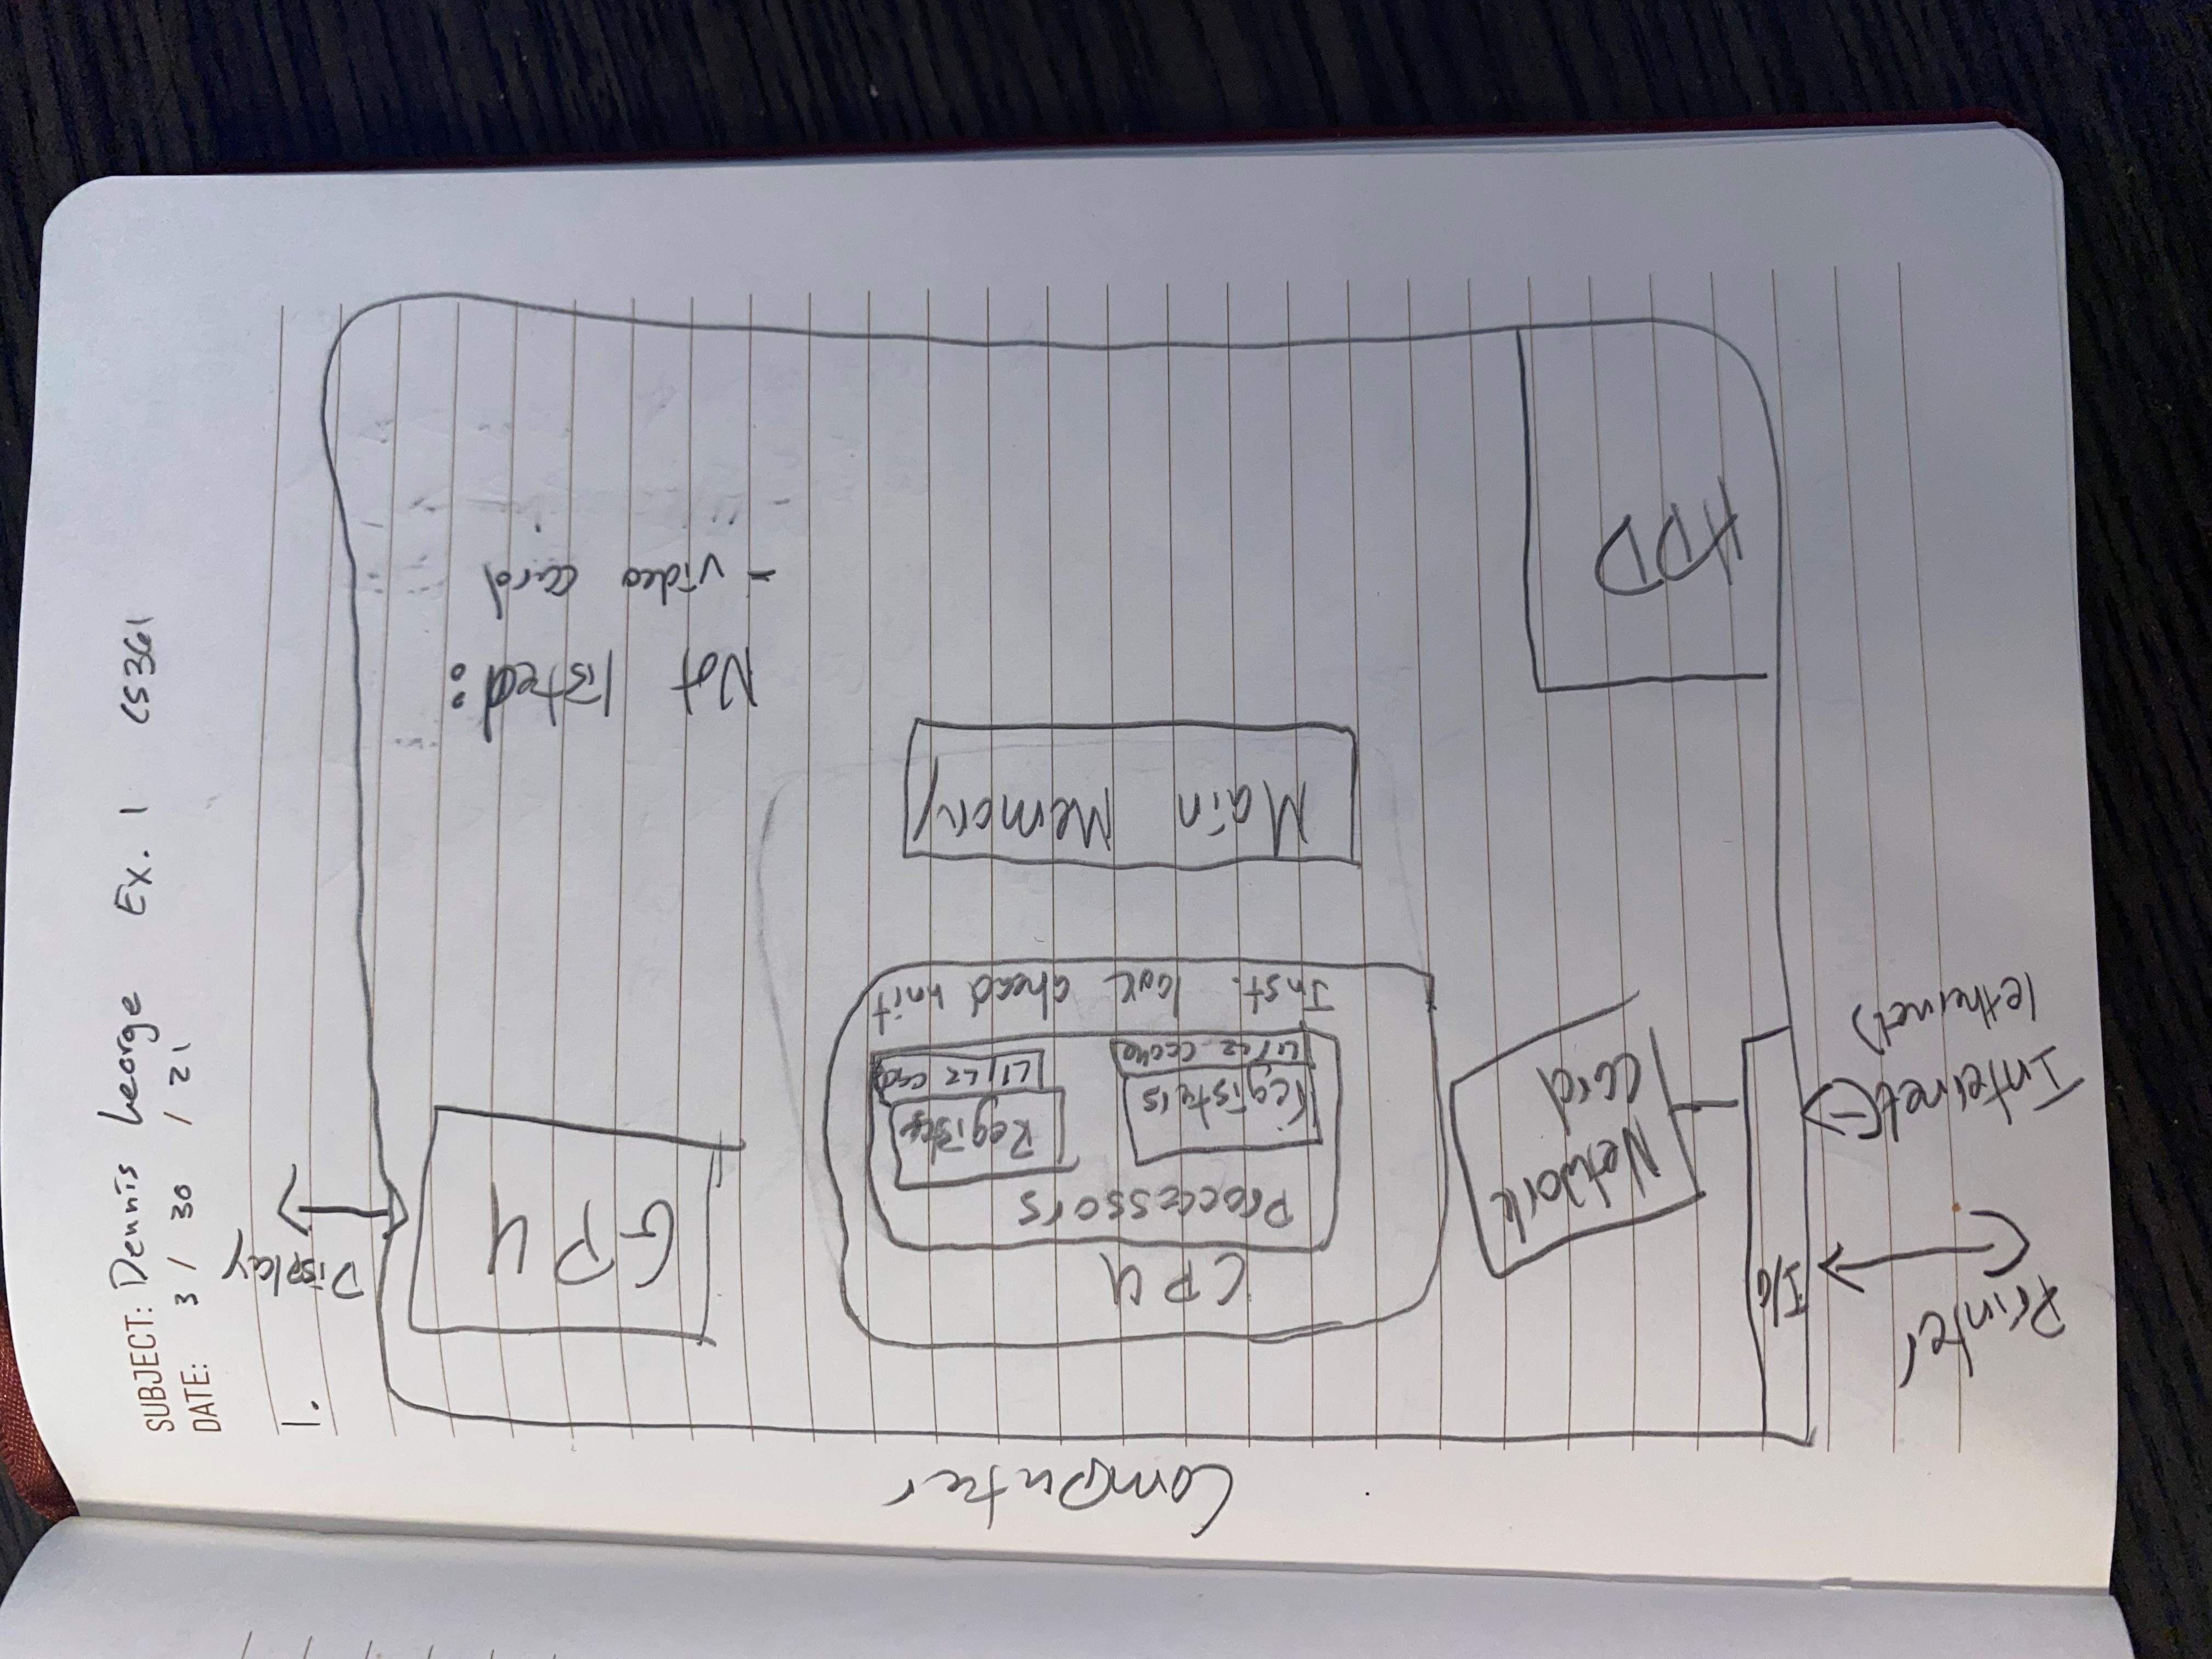 Computer
SUBJECT: Dennis George Ex. 1 CS361
DATE: 3 / 30 / 21
1.
Printer
I/O
Internet
(ethernet)
Network
card
CPU
Proccessors
registers
L1/L2 cache
Registers
L1/L2 cache
Inst. look ahead unit
GPU
Display
Main Memory
HDD
Not listed:
- video card